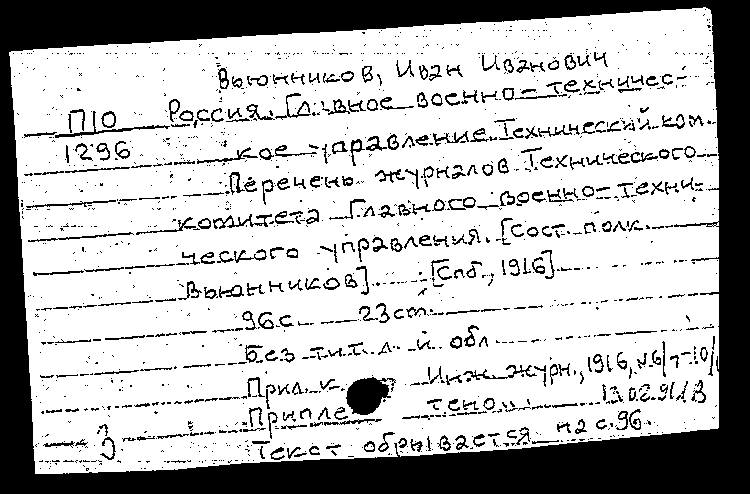 Вьюнников, Иван Иванович
П10 Россия. Главное военно-техничес-
1296 кое управление. Технический ком.
Перечень журналов Технического
комитета Главного военно-техни-
ческого управления. [Сост. полк.
Вьюнников]. [Спб., 1916].
96 с. 23 cm.
Без тит. л. и обл.
Прил. к Инж. журн., 1916, №6/7-10/
Припле тено...
3 Текст обрывается на с. 96.